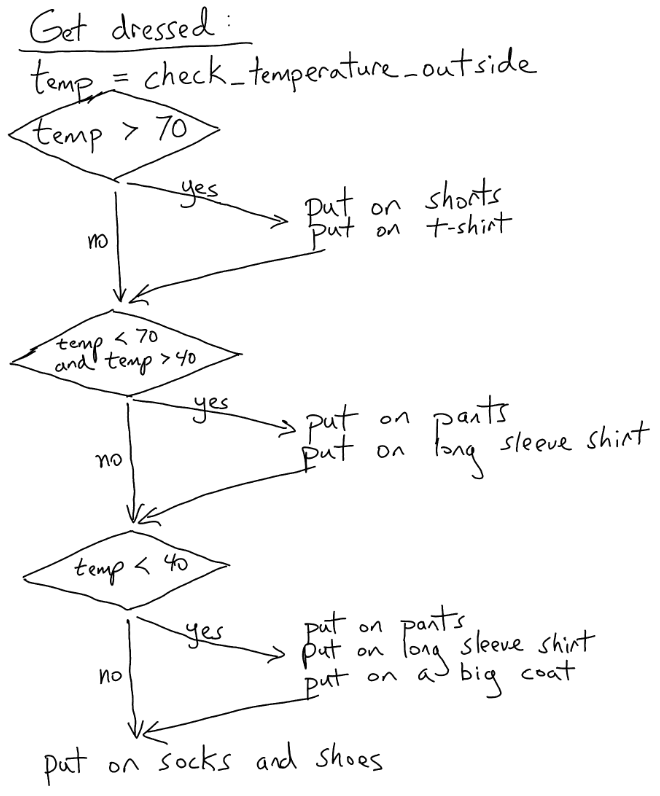 Get dressed:
temp = check_temperature_outside
temp > 70
yes
put on shorts
put on t-shirt
no
temp < 70
and temp > 40
yes
put on pants
put on long sleeve shirt
no
temp < 40
yes
put on pants
put on long sleeve shirt
put on a big coat
no
put on socks and shoes